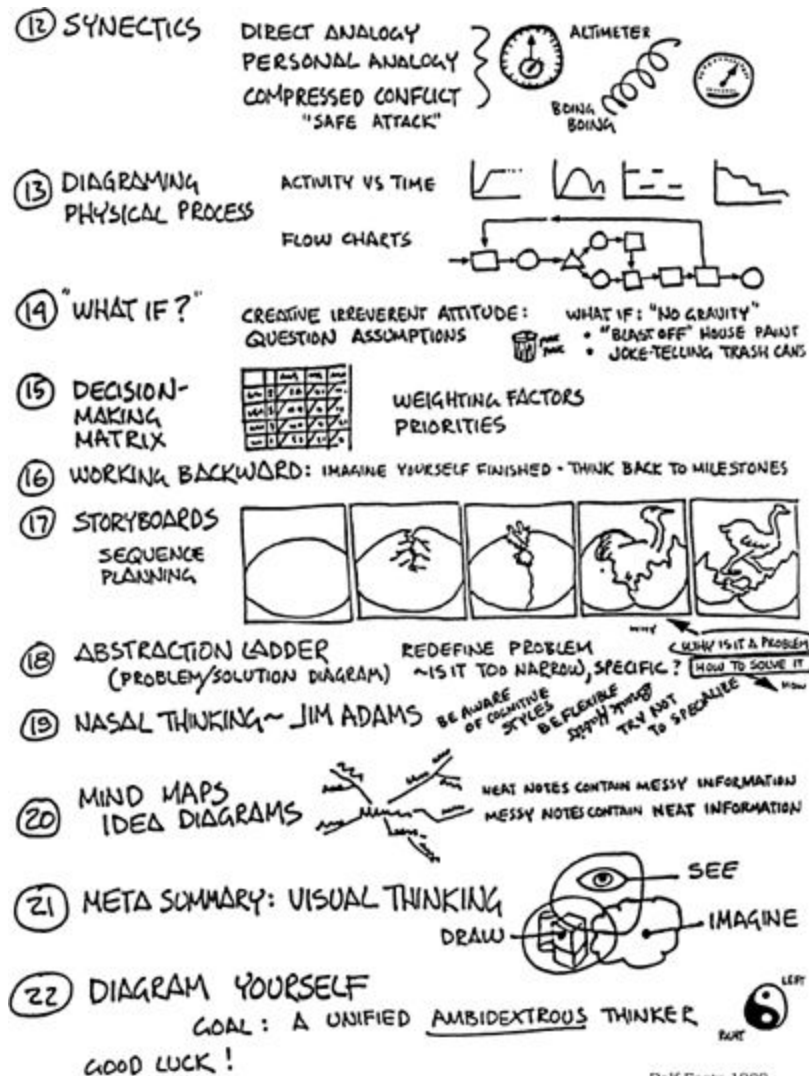 12 SYNECTICS
DIRECT ANALOGY
PERSONAL ANALOGY
COMPRESSED CONFLICT
"SAFE ATTACK"
ALTIMETER
BOING
BOING
13 DIAGRAMING
PHYSICAL PROCESS
ACTIVITY VS TIME
FLOW CHARTS
14 "WHAT IF?"
CREATIVE IRREVERENT ATTITUDE:
QUESTION ASSUMPTIONS
WHAT IF: "NO GRAVITY"
• "BLAST OFF" HOUSE PAINT
• JOKE-TELLING TRASH CANS
15 DECISION-
MAKING
MATRIX
WEIGHTING FACTORS
PRIORITIES
16 WORKING BACKWARD: IMAGINE YOURSELF FINISHED - THINK BACK TO MILESTONES
17 STORYBOARDS
SEQUENCE
PLANNING
18 ABSTRACTION LADDER
(PROBLEM/SOLUTION DIAGRAM)
REDEFINE PROBLEM
~IS IT TOO NARROW, SPECIFIC?
WHY
WHY IS IT A PROBLEM
HOW TO SOLVE IT
HOW
19 NASAL THINKING ~ JIM ADAMS
BE AWARE
OF COGNITIVE
STYLES
BE FLEXIBLE
TRY NOT
TO SPECIALIZE
20 MIND MAPS
IDEA DIAGRAMS
NEAT NOTES CONTAIN MESSY INFORMATION
MESSY NOTES CONTAIN NEAT INFORMATION
21 META SUMMARY: VISUAL THINKING
SEE
DRAW
IMAGINE
22 DIAGRAM YOURSELF
GOAL: A UNIFIED AMBIDEXTROUS THINKER
LEFT
RIGHT
GOOD LUCK!